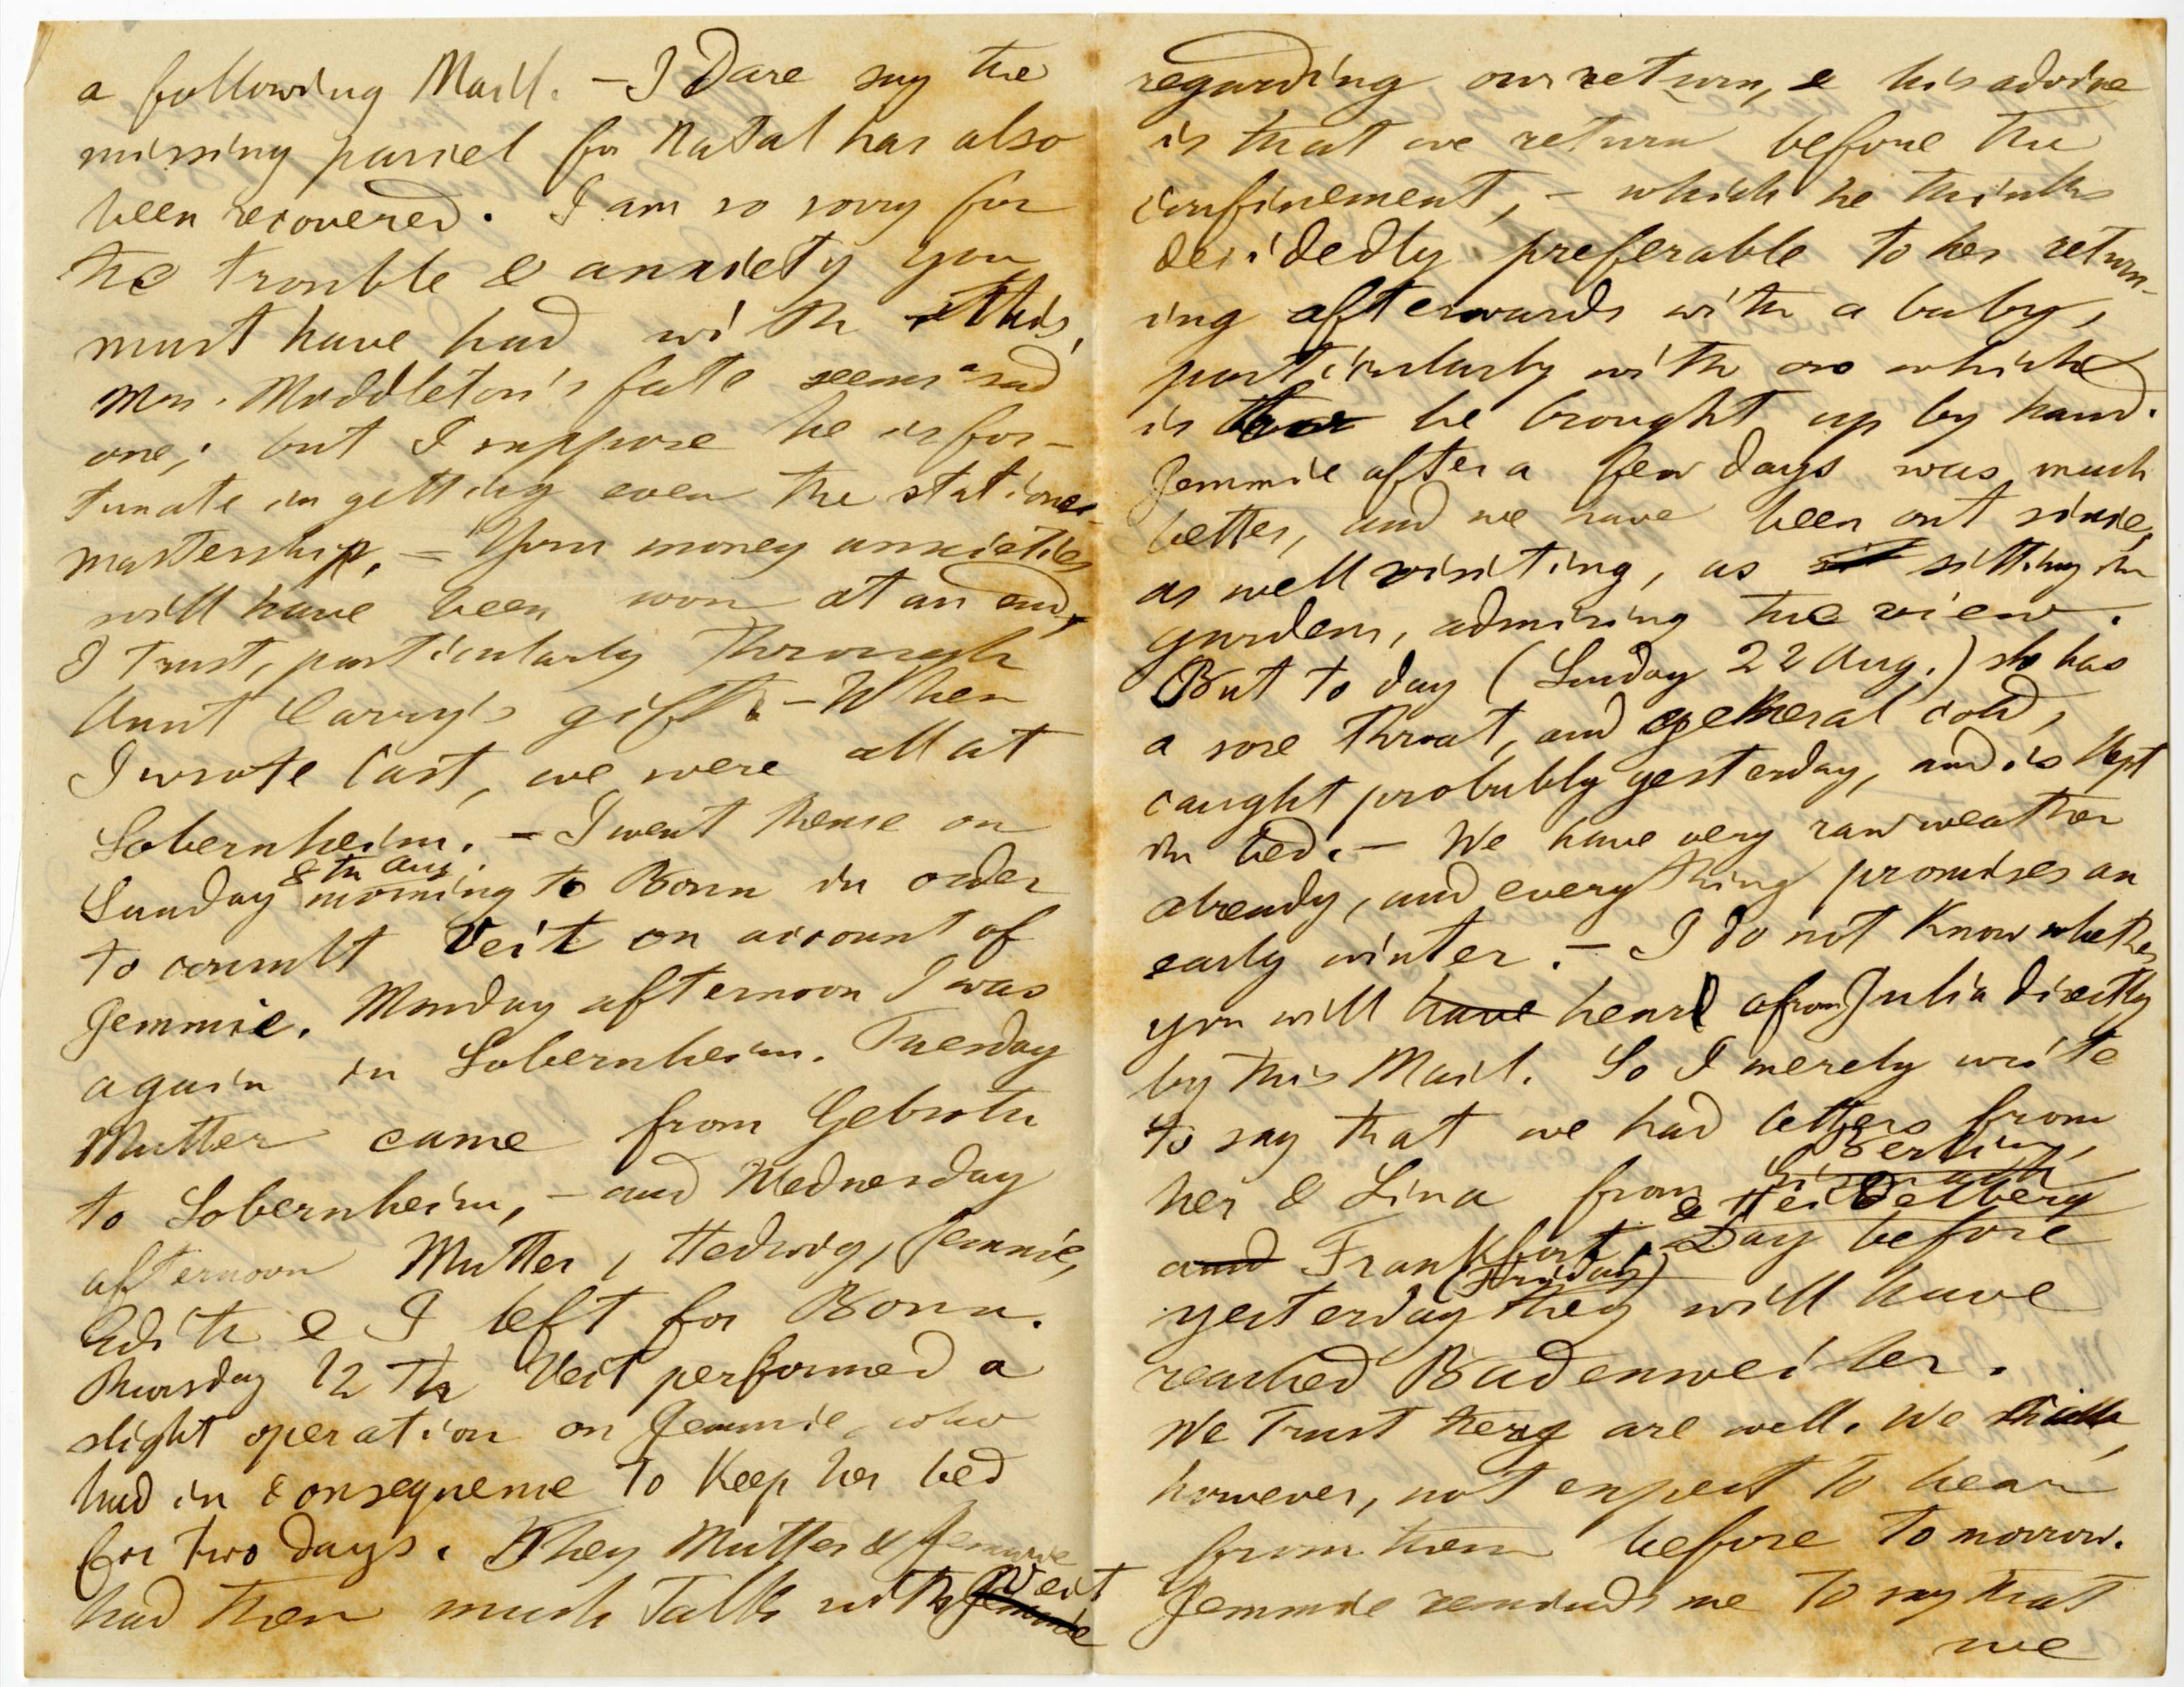 a following Mail. – I Dare say the
missing parcel for Natal has also
been recovered. I am so sorry for
the trouble & anxiety you
must have had with this,
Mrs. Middleton's fate seems a sad
one; but I suppose he is for-
tunate in getting even the station
mastership. – Your money anxieties
will have been won at an end,
I trust, particularly through
Aunt Carry's gift. – When
I wrote last, we were all at
Sobernheim. – I went thence on
8th Aug.
Sunday morning to Bonn in order
to consult Veit on account of
Jemmie. Monday afternoon I was
again in Sobernheim. Tuesday
Mutter came from Gebroth
to Sobernheim, – and Wednesday
afternoon Mutter, Hedwig, Jemmie,
Edith & I left for Bonn.
Thursday 12 Th Veit performed a
slight operation on Jemmie, who
had in consequence to Keep her bed
for two days. They Mutter & Jemmie
had then much Talk with Jemmie Veit
regarding our return, & his advice
is that we return before the
confinement, – which he thinks
decidedly preferable to her return-
ing afterwards with a baby,
particularly with on which
is to be brought up by hand.
Jemmie after a few days was much
better, and we have been out since,
as well visiting, as sit sitting in
gardens, admiring the view.
But to day (Sunday 22 Aug.) she has
a sore throat, and general cold,
caught probably yesterday, and is Kept
in bed. – We have very raw weather
already, and everything promises an
early winter. – I do not Know whether
you will have hear from Julia directly
by this Mail. So I merely write
to say that we had letters from
her & Lina from Berlin,
& Heidelberg
and Frankfort. Day before
yesterday (Friday) they will have
reached Badenweiler.
We Trust they are well. We
however, not expect to hear
from them before to morrow.
Jemmie reminds me to say that
we